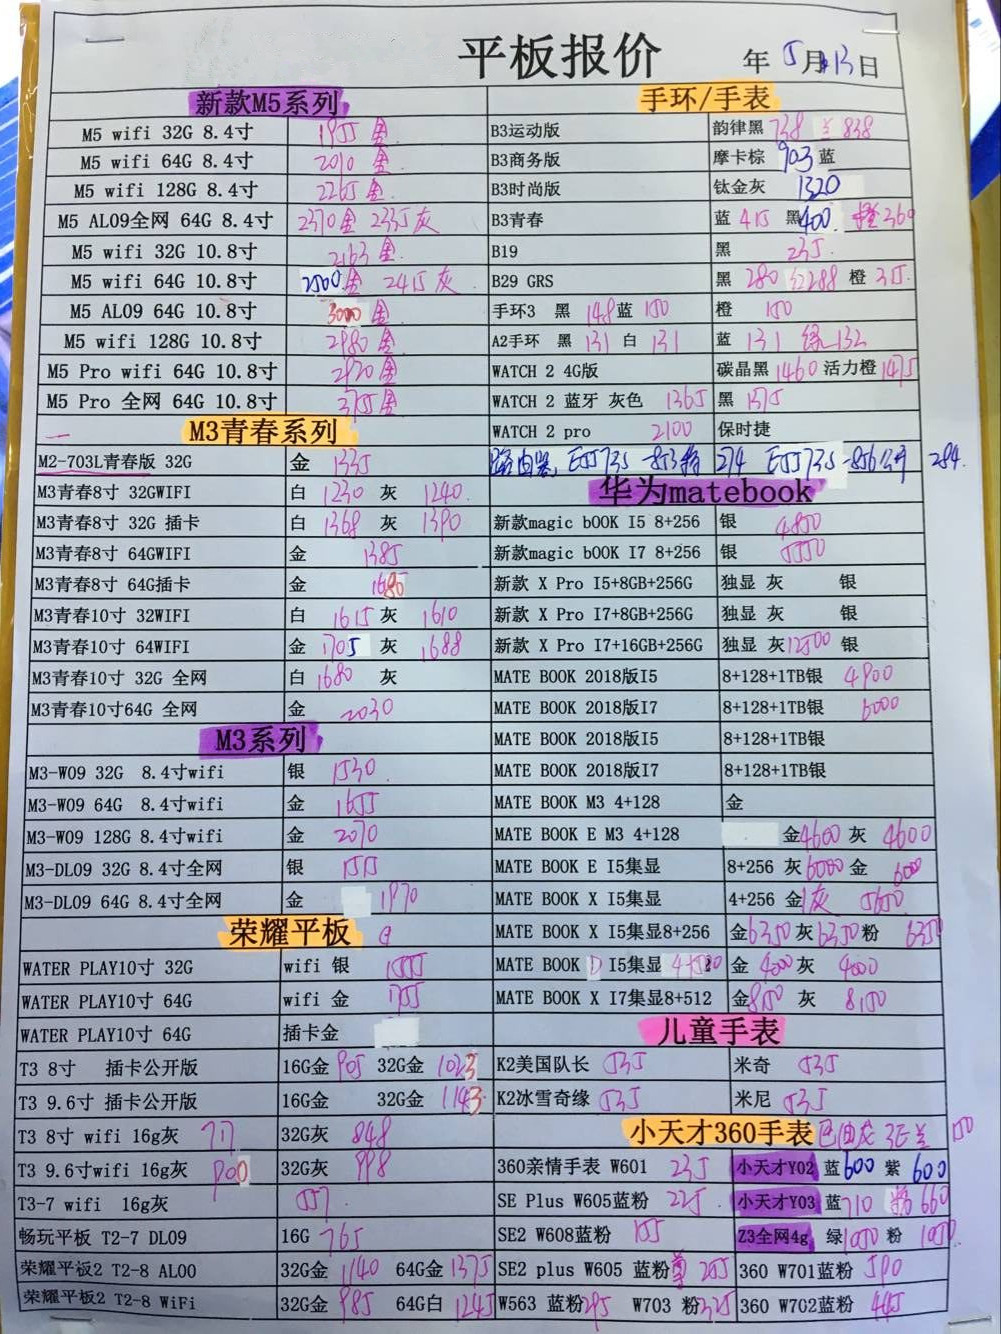 平板报价 年 5月13日
新款M5系列 手环/手表
M5 wifi 32G 8.4寸 1955 金 B3运动版 韵律黑 738 兰 838
M5 wifi 64G 8.4寸 2010 金 B3商务版 摩卡棕 903 蓝
M5 wifi 128G 8.4寸 2265 金 B3时尚版 钛金灰 1320
M5 AL09全网 64G 8.4寸 2370金 2335灰 B3青春 蓝 415 黑 400 橙360
M5 wifi 32G 10.8寸 2163 金 B19 黑 235
M5 wifi 64G 10.8寸 2500金 2415灰 B29 GRS 黑 280 红288 橙 315
M5 AL09 64G 10.8寸 3000 金 手环3 黑 148 蓝 150 橙 150
M5 wifi 128G 10.8寸 2980 金 A2手环 黑 131 白 131 蓝 131 绿 132
M5 Pro wifi 64G 10.8寸 2920 金 WATCH 2 4G版 碳晶黑 1460 活力橙 1475
M5 Pro 全网 64G 10.8寸 3755 金 WATCH 2 蓝牙 灰色 1365 黑 1375
M3青春系列 WATCH 2 pro 2100 保时捷
M2-703L青春版 32G 金 1335 路由器 E5573S-853 274 E5573S-856 284
M3青春8寸 32GWIFI 白 1230 灰 1240 华为matebook
M3青春8寸 32G 插卡 白 1368 灰 1390 新款magic bOOK I5 8+256 银 4850
M3青春8寸 64GWIFI 金 1385 新款magic bOOK I7 8+256 银 5550
M3青春8寸 64G插卡 金 1685 新款 X Pro I5+8GB+256G 独显 灰 银
M3青春10寸 32WIFI 白 1615 灰 1610 新款 X Pro I7+8GB+256G 独显 灰 银
M3青春10寸 64WIFI 金 1705 灰 1688 新款 X Pro I7+16GB+256G 独显 灰12500 银
M3青春10寸 32G 全网 白 1680 灰 MATE BOOK 2018版I5 8+128+1TB银 4900
M3青春10寸64G 全网 金 2030 MATE BOOK 2018版I7 8+128+1TB银 6000
M3系列 MATE BOOK 2018版I5 8+128+1TB银
M3-W09 32G 8.4寸wifi 银 1530 MATE BOOK 2018版I7 8+128+1TB银
M3-W09 64G 8.4寸wifi 金 1655 MATE BOOK M3 4+128 金
M3-W09 128G 8.4寸wifi 金 2070 MATE BOOK E M3 4+128 金4600 灰 4600
M3-DL09 32G 8.4寸全网 银 1555 MATE BOOK E I5集显 8+256 灰6000 金 6000
M3-DL09 64G 8.4寸全网 金 1970 MATE BOOK X I5集显 4+256 金/灰 5650
荣耀平板 MATE BOOK X I5集显8+256 金6350 灰6350 粉 6350
WATER PLAY10寸 32G wifi 银 1555 MATE BOOK D I5集显 金 4000 灰 4000
WATER PLAY10寸 64G wifi 金 1755 MATE BOOK X I7集显8+512 金8150 灰 8150
WATER PLAY10寸 64G 插卡金 儿童手表
T3 8寸 插卡公开版 16G金 905 32G金 1023 K2美国队长 535 米奇 535
T3 9.6寸 插卡公开版 16G金 32G金 1143 K2冰雪奇缘 535 米尼 535
T3 8寸 wifi 16g灰 717 32G灰 848 小天才360手表 巴迪龙 3E 兰 150
T3 9.6寸wifi 16g灰 900 32G灰 998 360亲情手表 W601 235 小天才Y02 蓝 600 紫 600
T3-7 wifi 16g灰 557 SE Plus W605蓝粉 225 小天才Y03 蓝 710 660
畅玩平板 T2-7 DL09 16G 765 SE2 W608蓝粉 155 Z3全网4g 绿 1050 粉 1050
荣耀平板2 T2-8 AL00 32G金 1140 64G金 1375 SE2 plus W605 蓝粉 205 360 W701蓝粉 590
荣耀平板2 T2-8 WiFi 32G金 985 64G白 1245 W563 蓝粉295 W703 粉325 360 W702蓝粉 445